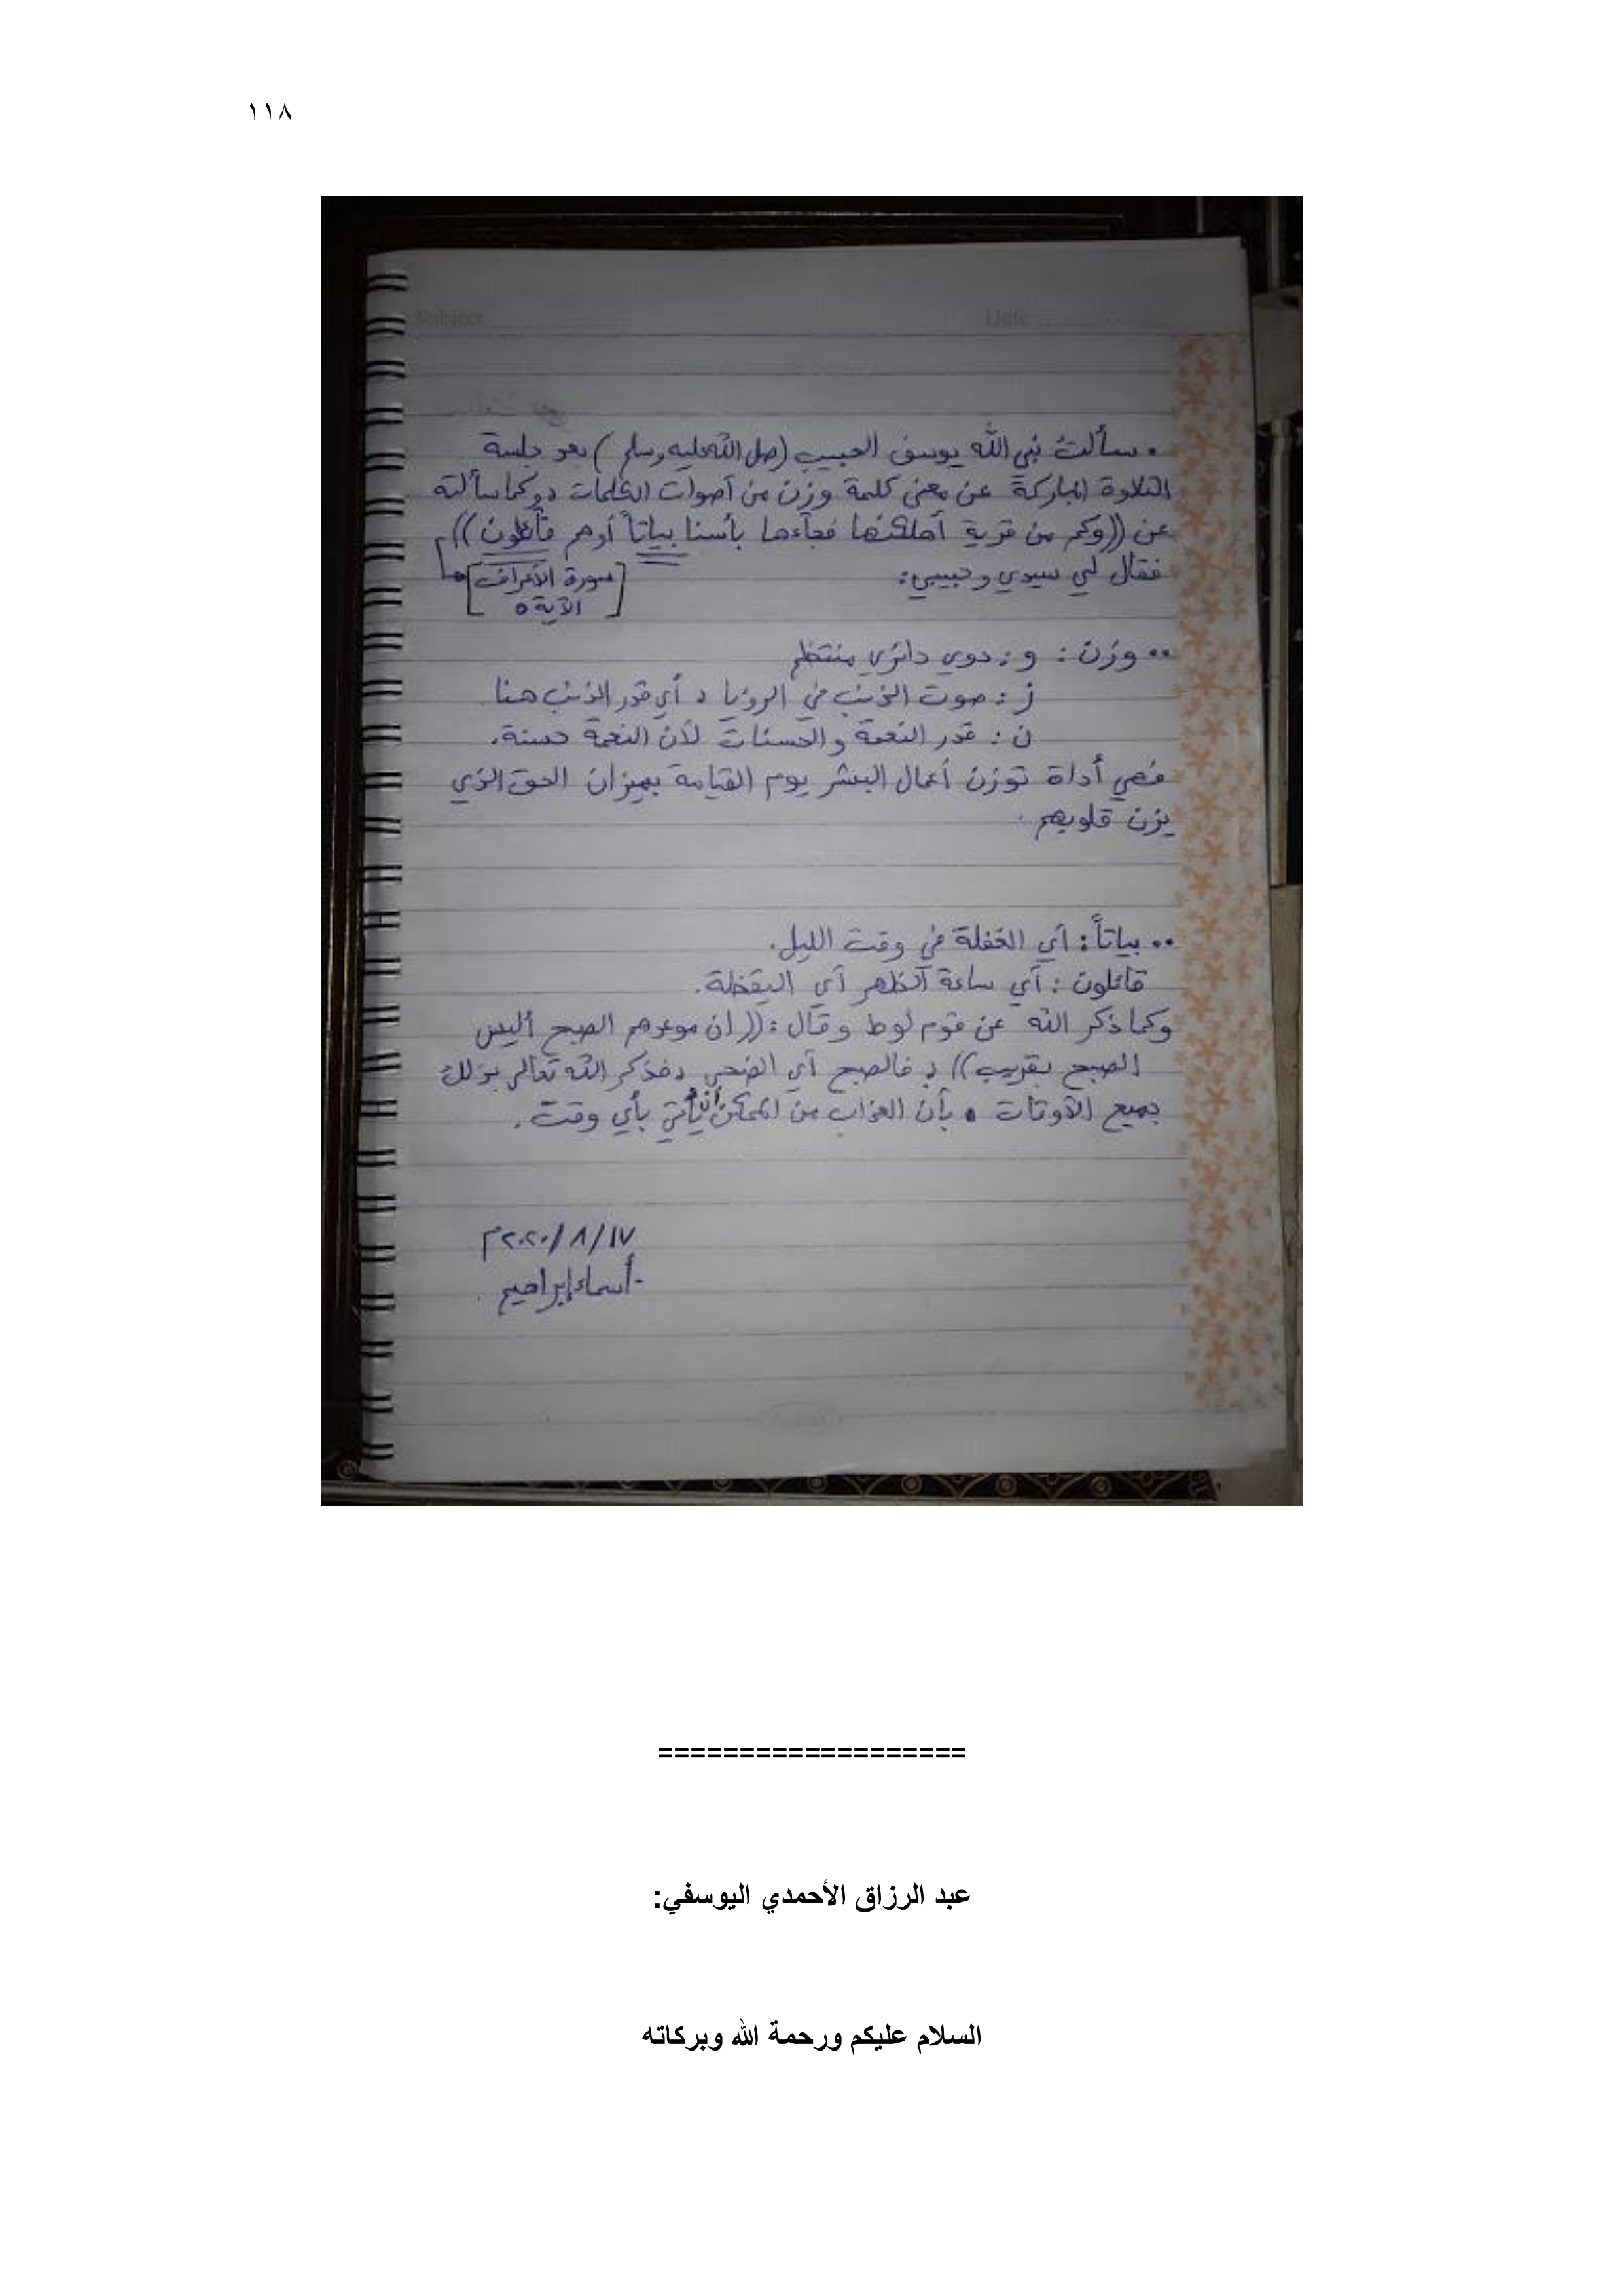 ١١٨
Subject
Date
• سألت نبي الله يوسف الحبيب (صل الله عليه وسلم) بعد جلسة
التلاوة المباركة عن معنى كلمة وزن من أصوات الكلمات، وكما سألته
عن ((وكم من قرية أهلكنها فجآءها بأسنا بياتاً أوهم قآئلون))
[سورة الأعراف
الآية ٥]
فقال لي سيدي وحبيبي:
•• وزن: و: دوي دائري منتظم
ز: صوت الذنب في الرؤيا، أي قدر الذنب هنا.
ن: قدر النعمة والحسنات لأن النعمة حسنة.
فهي أداة توزن أعمال البشر يوم القيامة بميزان الحق الذي
يزن قلوبهم.
•• بياتاً: أي الغفلة في وقت الليل.
قائلون: أي ساعة الظهر أي اليقظة.
وكما ذكر الله عن قوم لوط وقال: ((إن موعدهم الصبح أليس
الصبح بقريب))، فالصبح أي الضحى، فذكر الله تعالى بذلك
جميع الأوقات • بأن العذاب من الممكن أن يأتي بأي وقت.
١٧/٨/٢٠٢٠م
- أسماء إبراهيم.
===================
عبد الرزاق الأحمدي اليوسفي:
السلام عليكم ورحمة الله وبركاته